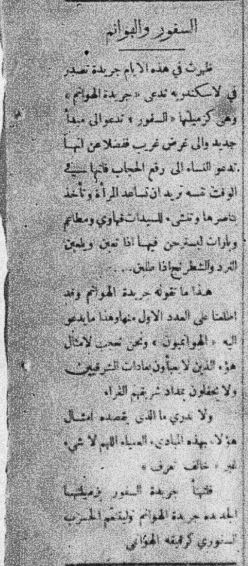 السفور والهوانم
ظهرت في هذه الايام جريدة تصدر
في لاسكندريه تدعى «جريدة الهوانم»
وهي كزميلتها «السفور» تدعو الى مبدأ
جديد والى غرض غريب ففضلا عن انها
تدعو النساء الى رفع الحجاب فانها في
الوقت نفسه تريد ان تساعد المرأة وتأخذ
بناصرها وتنشىء للسيدات قهاوي ومطاعم
وبارات ليسترحن فيها اذا تعبن ويلعبن
النرد والشطرنج اذا مللن ....
هذا ما تقوله جريدة الهوانم وقد
اطلعنا على العدد الاول منها وهذا ما يدعو
اليه «الهوانميون» ونحن نعجب لامثال
هؤلاء الذين لا يعبأون بعادات الشرقيين
ولا يحفلون بمداد شريعتهم الغراء
ولا ندري ما الذي يقصده امثال
هؤلاء بهذه المبادىء العمياء اللهم لا شيء
غير «خالف تعرف»
فلتهنأ جريدة السفور بزميلتها
الجديده جريدة الهوانم وليتم الحزب
السفوري كرفيقه الهوانمي